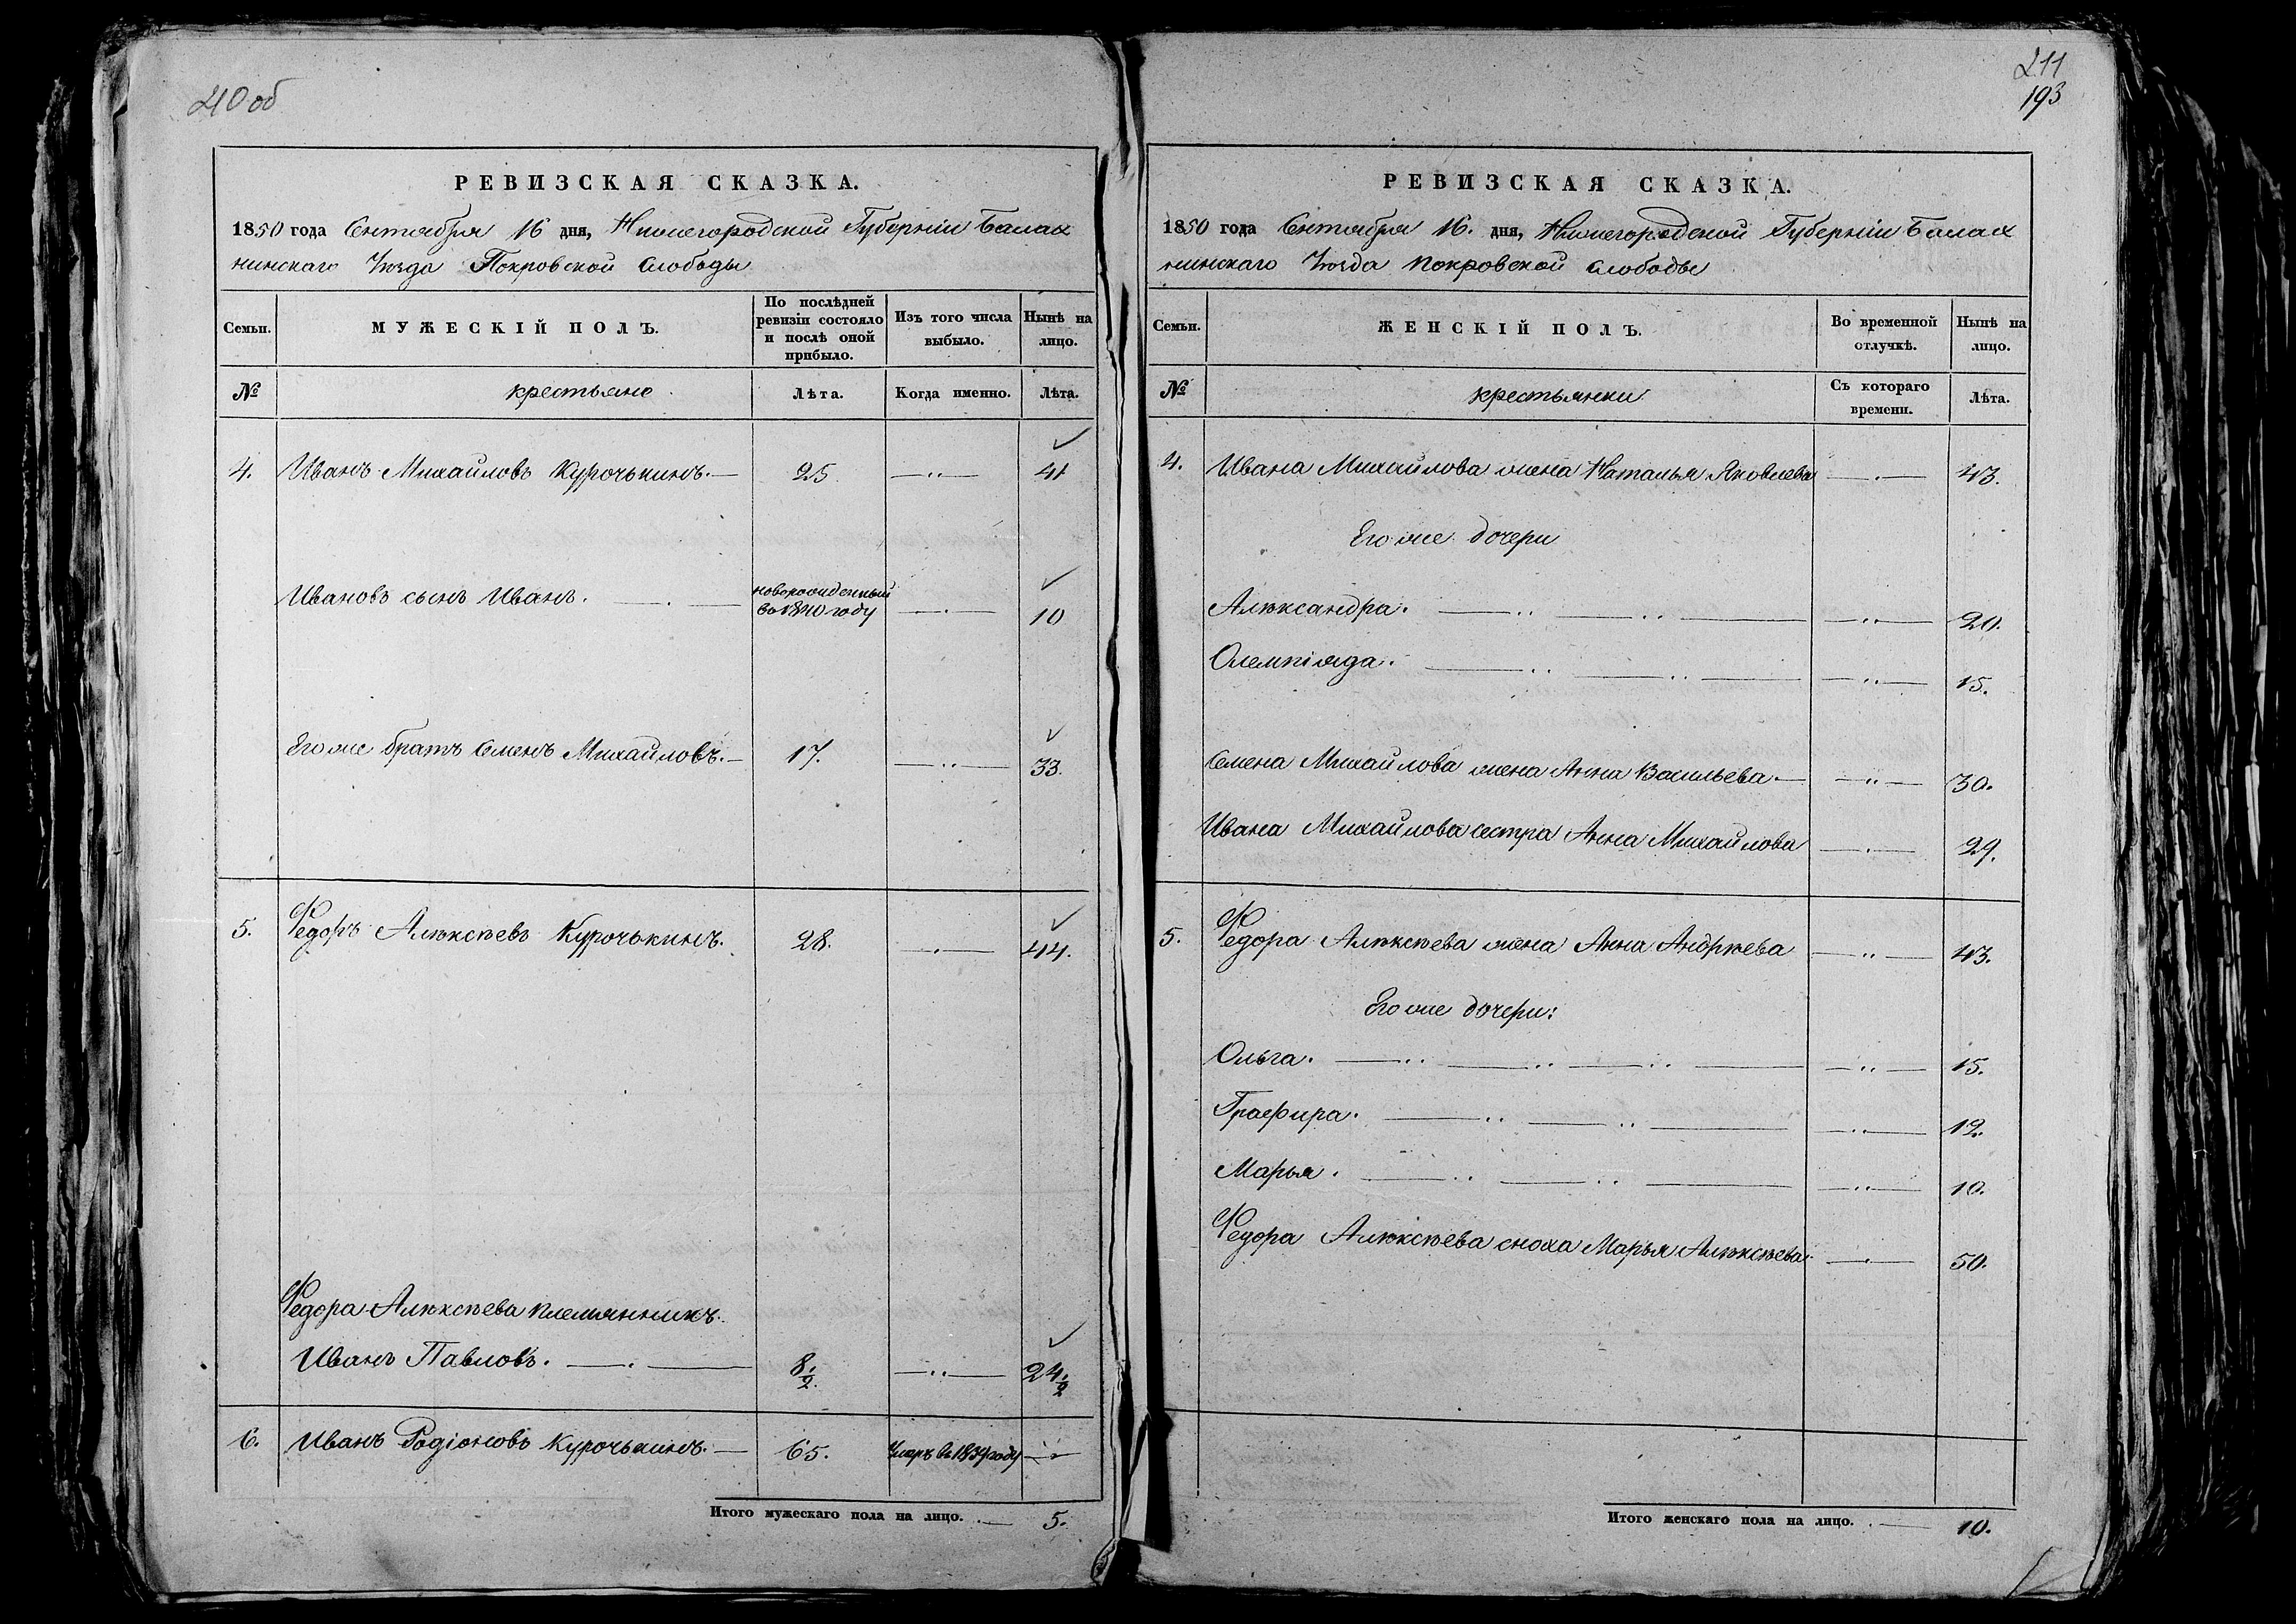 40 об
РЕВИЗСКАЯ СКАЗКА.
1850 года Сентября 16 дня, Нижегородской Губерніи Балах
нинскаго Уѣзда Покровской слободы
Семьи. МУЖЕСКІЙ ПОЛЪ. По послѣдней ревизіи состояло и послѣ оной прибыло. Изъ того числа выбыло. Нынѣ на лицо.
№ крестьяне Лѣта. Когда именно. Лѣта.
4. Иванъ Михайловъ Курочькинъ.— 25 —..— 41
Ивановъ сынъ Иванъ. новорожденный во 1840 году —.— 10
Его же братъ Семенъ Михайловъ.— 17. —..— 33.
5. Федоръ Алѣксѣевъ Курочькинъ. 28. —.— 44.
Федора Алѣксѣева племянникъ.
Иванъ Павловъ. —.— 8 1/2. —..— 24 1/2
6. Иванъ Родіоновъ Курочькинъ.— 65. Умеръ въ годду
Итого мужескаго пола на лицо. — 5.
211
193
РЕВИЗСКАЯ СКАЗКА.
1850 года Сентября 16. дня, Нижегородской Губерніи Балах
нинскаго Уѣзда покровской слободы
Семьи. ЖЕНСКІЙ ПОЛЪ. Во временной отлучкѣ. Нынѣ на лицо.
№ крестьянки Съ котораго времени. Лѣта.
4. Ивана Михайлова жена Наталья Яковлева —.— 43.
Его же дочери
Алѣксандра. —..— 20.
Олемпіяда. —..— 15.
Семена Михайлова жена Анна Васильева.— —..— 30.
Ивана Михайлова сестра Анна Михайлова —.— 29.
5. Федора Алѣксѣева жена Анна Андрѣева —..— 43.
Его же дочери:
Ольга. —..— 15.
Графира. —..— 12.
Марья. —..— 10.
Федора Алѣксѣева сноха Марья Алѣксѣева. —.— 50.
Итого женскаго пола на лицо. — 10.